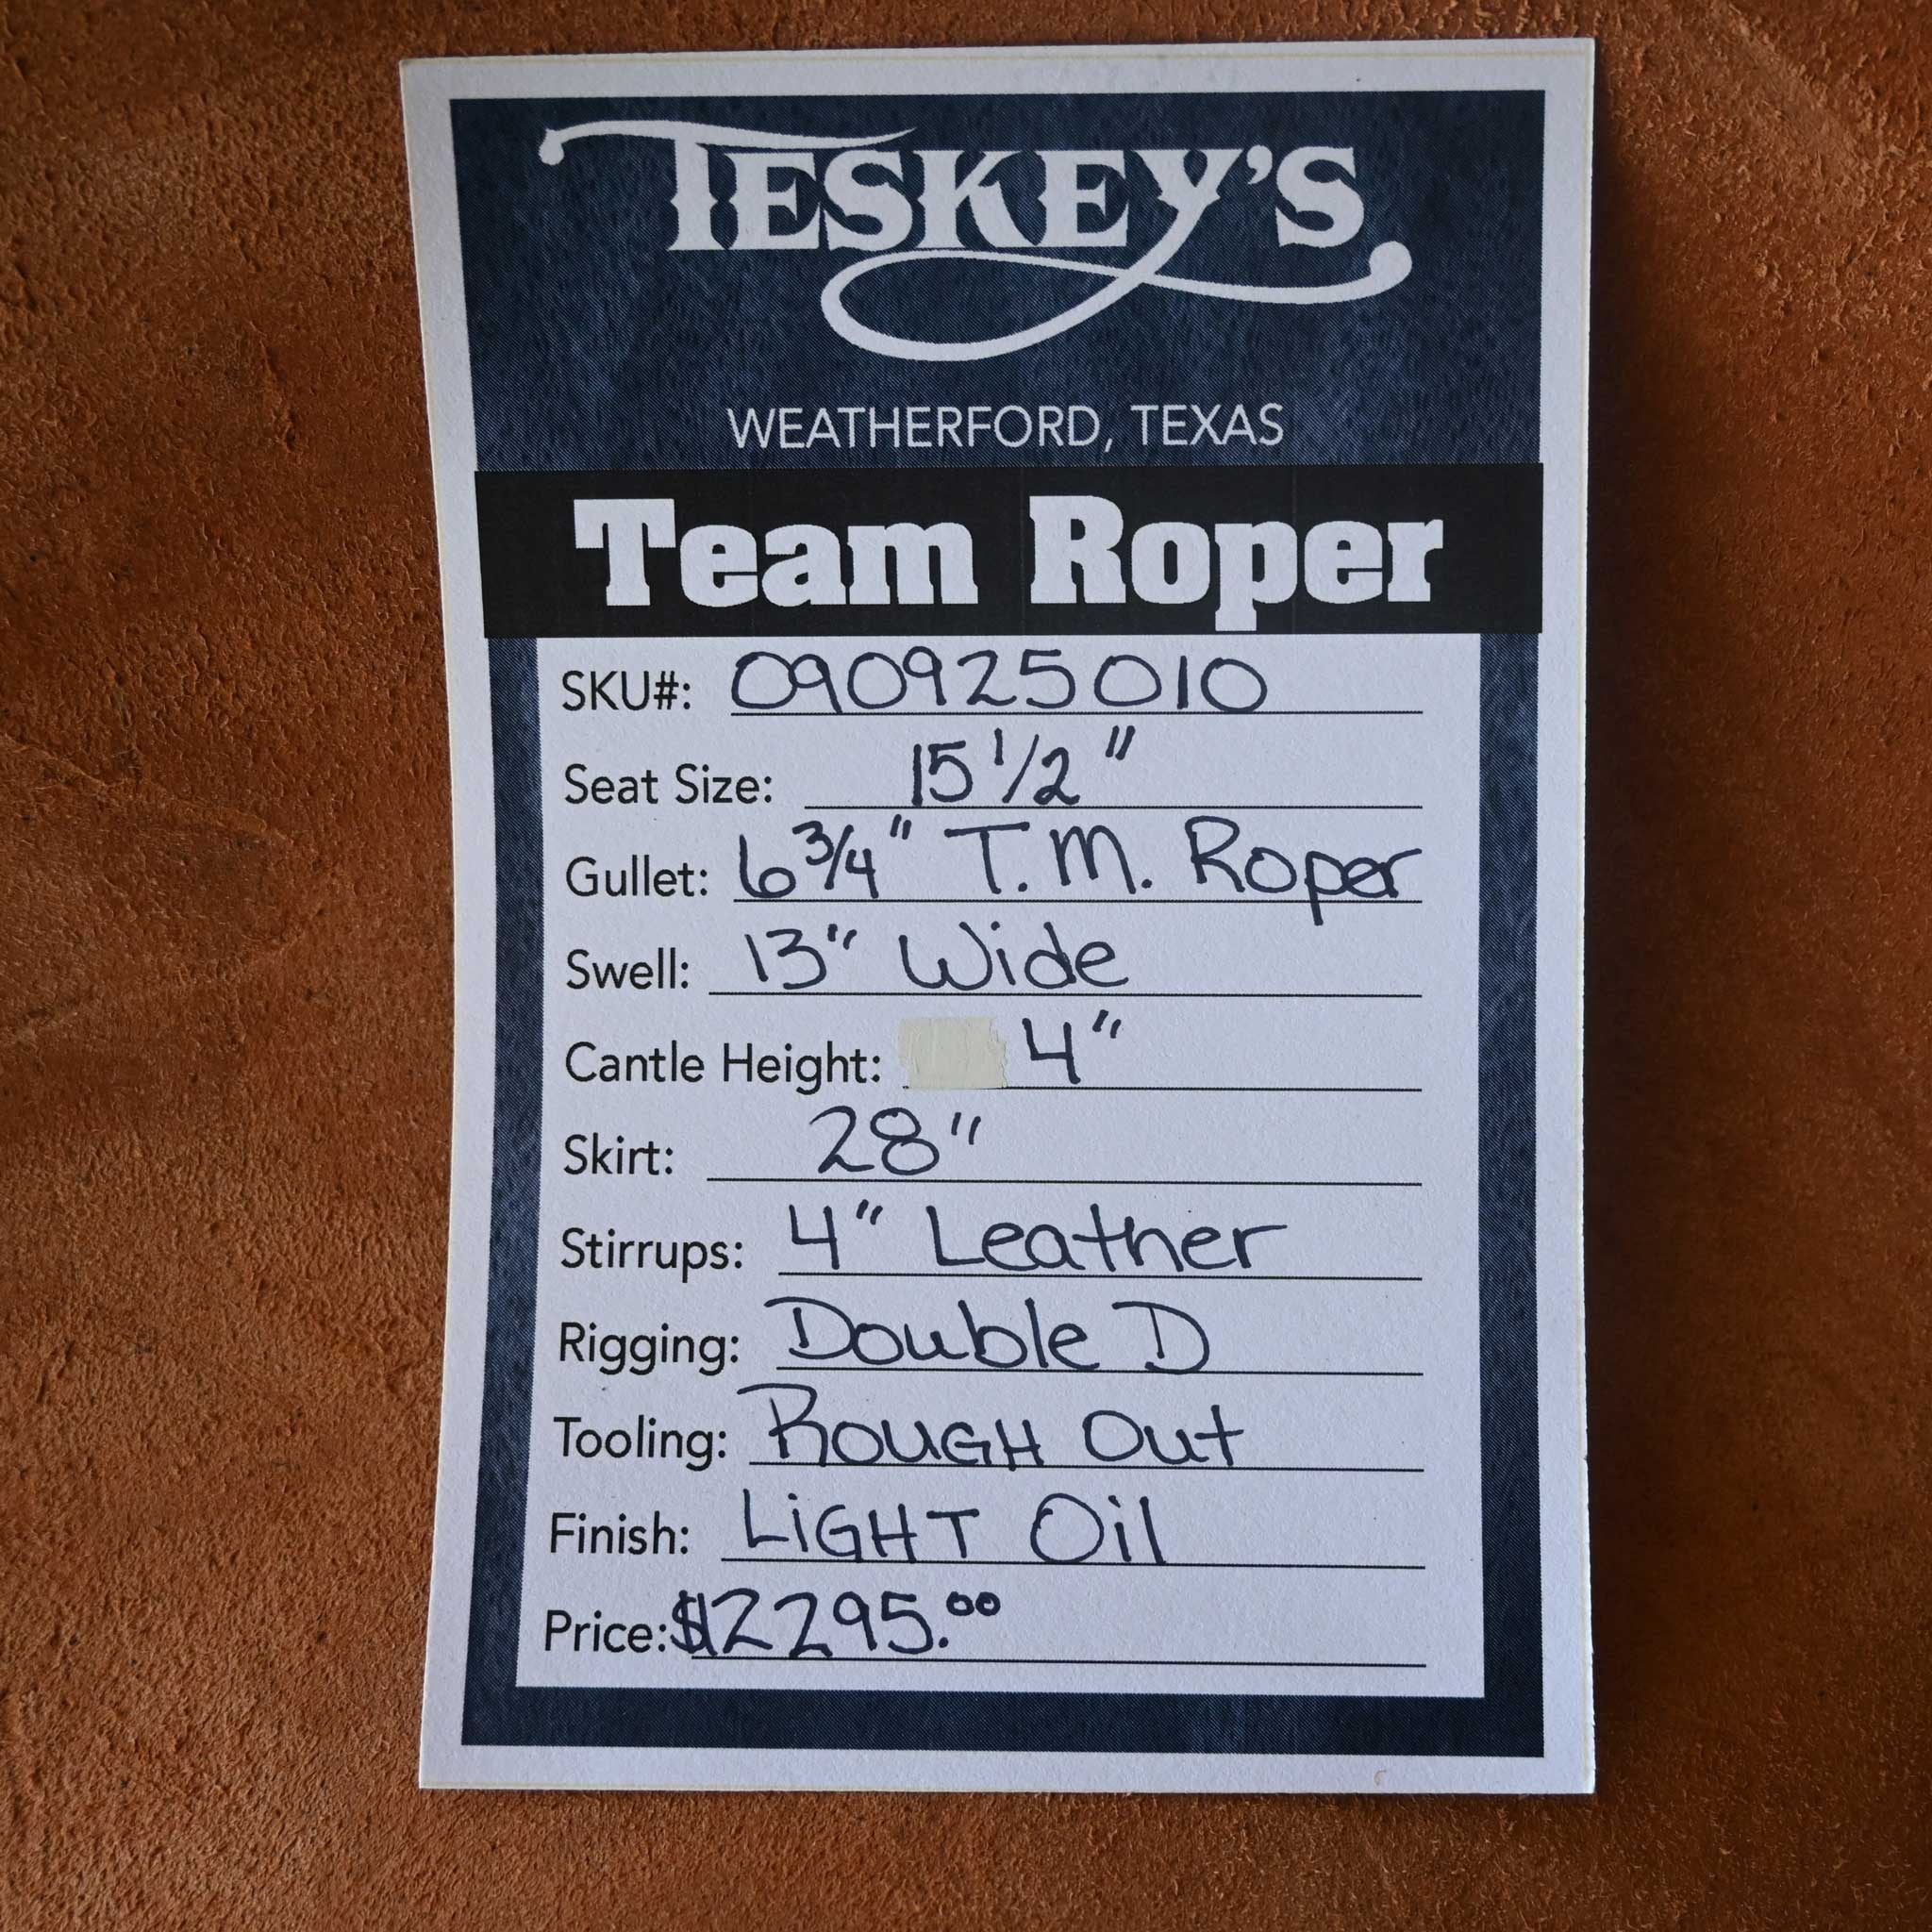 TESKEY'S
WEATHERFORD, TEXAS
Team Roper
SKU#: 090925010
Seat Size: 15 1/2"
Gullet: 6 3/4" T.M. Roper
Swell: 13" Wide
Cantle Height: 4"
Skirt: 28"
Stirrups: 4" Leather
Rigging: Double D
Tooling: ROUGH Out
Finish: LiGHT Oil
Price: $2295.00